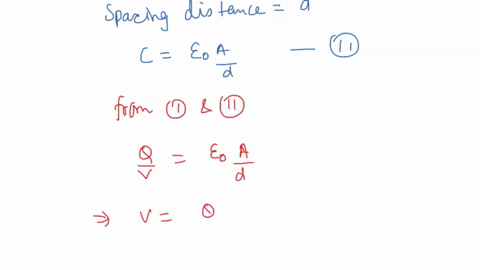 Spacing distance = d
C = ε₀ A/d — (II)
from (I) & (II)
Q/V = ε₀ A/d
⇒ V = Q